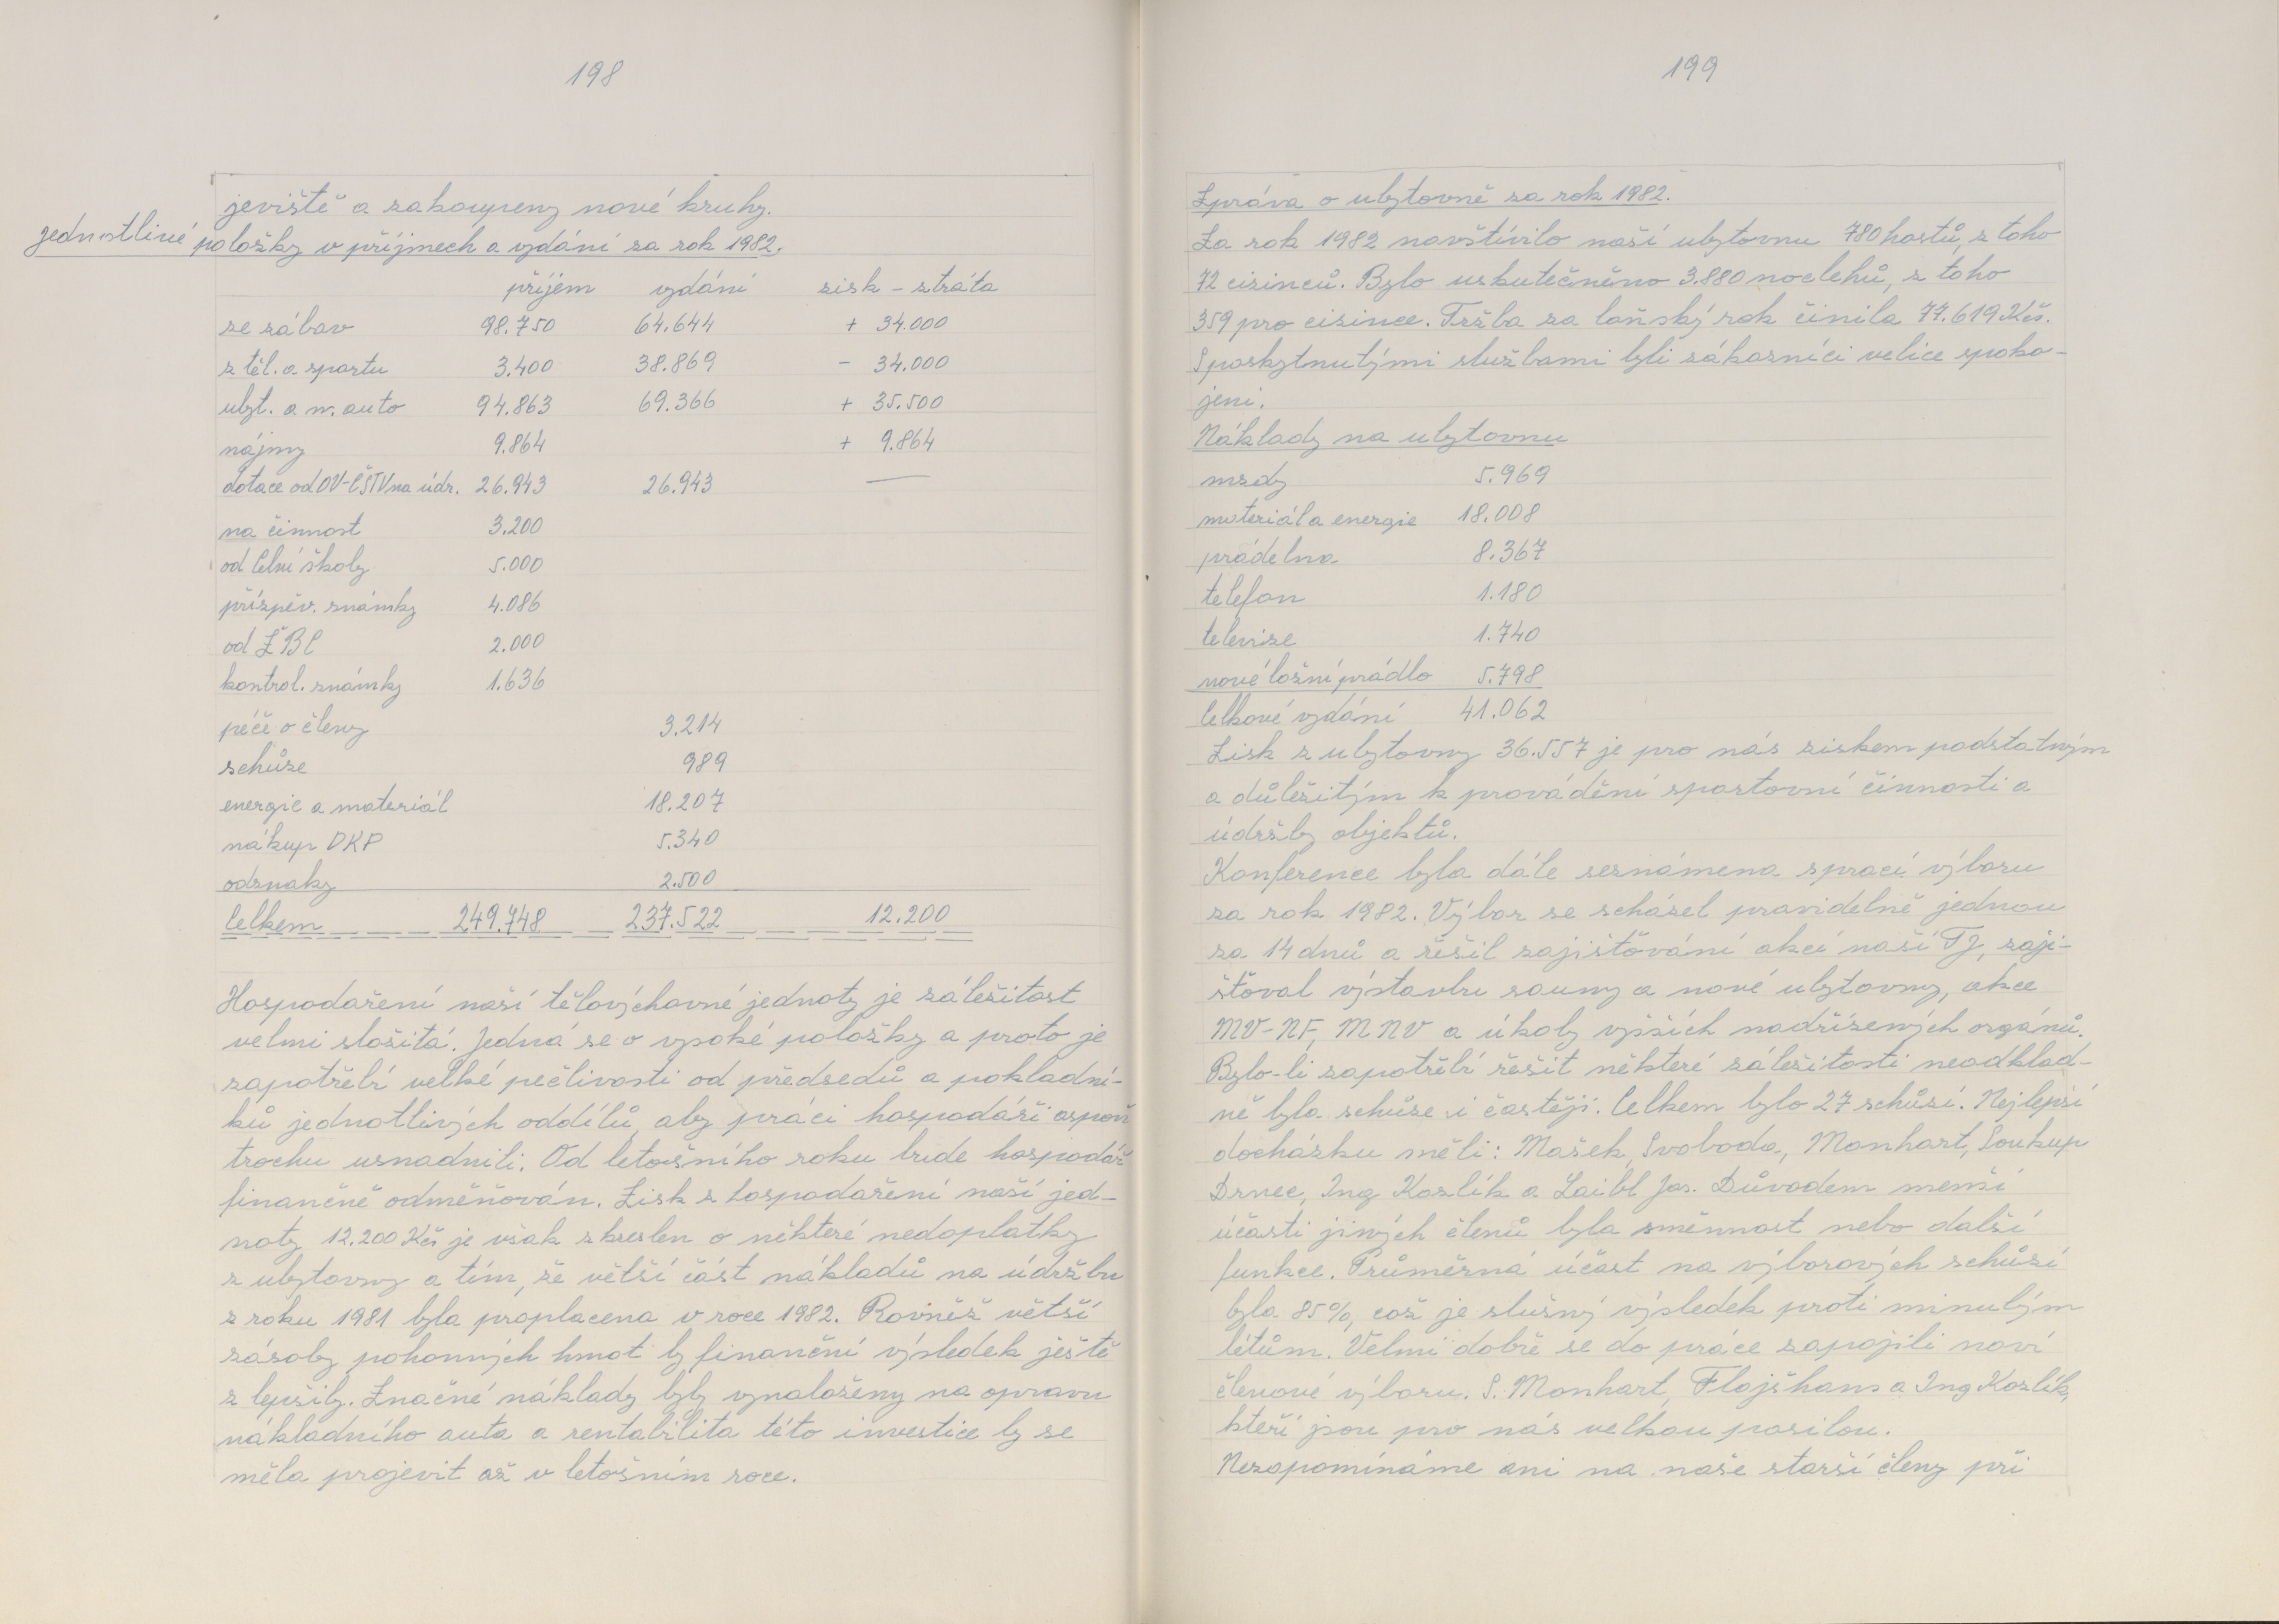 198
jeviště a zakoupeny nové kruhy.
Jednotlivé položky v příjmech a vydání za rok 1982.
příjem vydání zisk - ztráta
ze zábav 98.750 64.644 + 34.000
z těl. a sportu 3.400 38.869 - 34.000
ubyt. a n. auto 94.863 69.366 + 35.500
nájmy 9.864 + 9.864
dotace od OV-ČSTV na údr. 26.943 26.943 —
na činnost 3.200
od Celní školy 5.000
příspěv. známky 4.086
od ZBČ 2.000
kontrol. známky 1.636
péče o členy 3.214
schůze 989
energie a materiál 18.207
nákup DKP 5.340
odznaky 2.500
Celkem 249.748 237.522 12.200
Hospodaření naší tělovýchovné jednoty je záležitost
velmi složitá. Jedná se o vysoké položky a proto je
zapotřebí velké pečlivosti od předsedů a pokladní-
ků jednotlivých oddílů, aby práci hospodáři aspoň
trochu usnadnili. Od letošního roku bude hospodář
finančně odměňován. Zisk z hospodaření naší jed-
noty 12.200 Kčs je však zkreslen o některé nedoplatky
z ubytovny a tím, že větší část nákladů na údržbu
z roku 1981 byla proplacena v roce 1982. Rovněž větší
zásoby pohonných hmot by finanční výsledek ještě
zlepšily. Značné náklady byly vynaloženy na opravu
nákladního auta a rentabilita této investice by se
měla projevit až v letošním roce.
199
Zpráva o ubytovně za rok 1982.
Za rok 1982 navštívilo naší ubytovnu 780 hostů, z toho
72 cizinců. Bylo uskutečněno 3.880 noclehů, z toho
359 pro cizince. Tržba za loňský rok činila 77.619 Kčs.
S poskytnutými službami byli zákazníci velice spoko-
jeni.
Náklady na ubytovnu
mzdy 5.969
materiál a energie 18.008
prádelna 8.367
telefon 1.180
televize 1.740
nové ložní prádlo 5.798
Celkové vydání 41.062
Zisk z ubytovny 36.557 je pro nás ziskem podstatným
a důležitým k provádění sportovní činnosti a
údržby objektů.
Konference byla dále seznámena s prací výboru
za rok 1982. Výbor se scházel pravidelně jednou
za 14 dnů a řešil zajišťování akcí naší TJ, zaji-
šťoval výstavbu sauny a nové ubytovny, akce
MV-NF, MNV a úkoly vyšších nadřízených orgánů.
Bylo-li zapotřebí řešit některé záležitosti neodklad-
ně byla schůze i častěji. Celkem bylo 27 schůzí. Nejlepší
docházku měli: Mašek, Svoboda, Monhart, Soukup
Drnec, Ing Kozlík a Laibl Jos. Důvodem menší
účasti jiných členů byla směnnost nebo další
funkce. Průměrná účast na výborových schůzí
byla 85%, což je slušný výsledek proti minulým
létům. Velmi dobře se do práce zapojili noví
členové výboru. S. Monhart, Flajšhans a Ing Kozlík,
kteří jsou pro nás velkou posilou.
Nezapomínáme ani na naše starší členy při